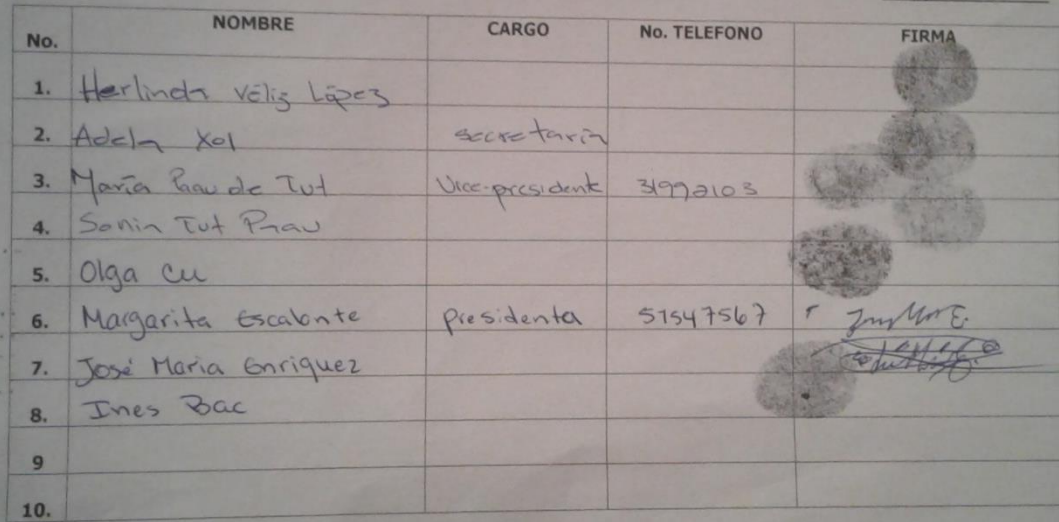 No. NOMBRE CARGO No. TELEFONO FIRMA
1. Herlinda Véliz López
2. Adela Xol secretaria
3. María de Tut Vice-presidente 31992103
4. Sonia Tut
5. Olga Cu
6. Margarita Escalante presidenta 51547567
7. José Maria Enriquez
8. Ines Bac
9
10.